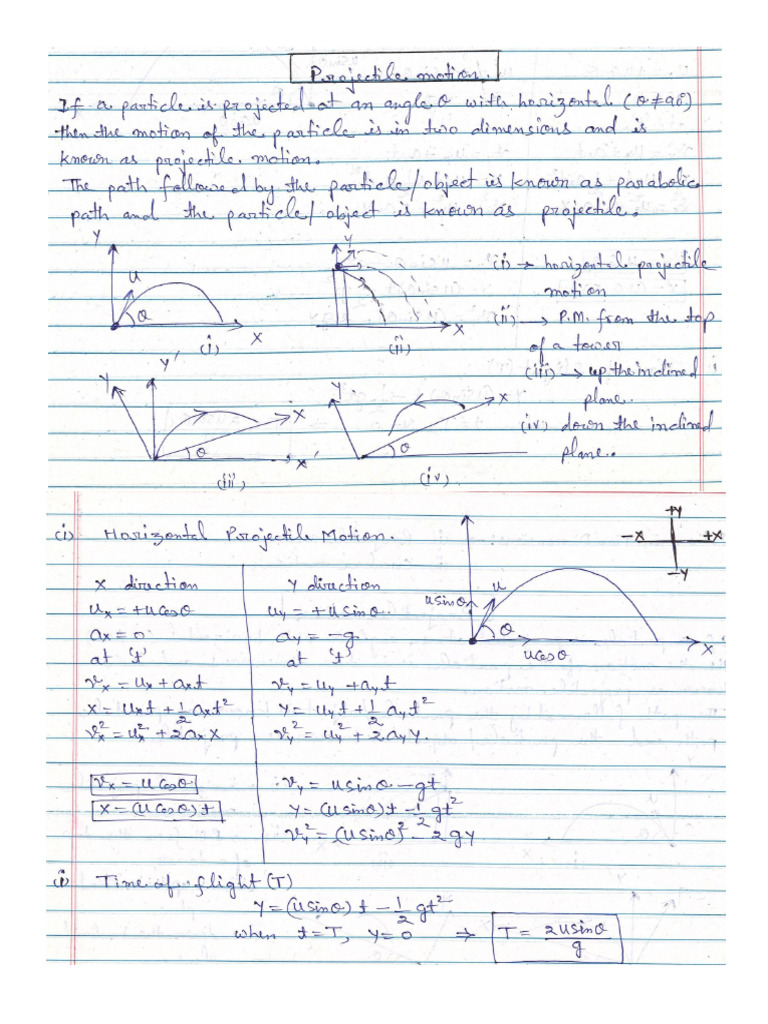 Projectile motion.
If a particle is projected at an angle θ with horizontal (θ≠90°)
then the motion of the particle is in two dimensions and is
known as projectile motion.
The path followed by the particle/object is known as parabolic
path and the particle/object is known as projectile.
Y
u
θ
X
(i)
y
X
(ii)
(i) → horizontal projectile
motion
(ii) → P.M. from the top
of a tower
(iii) → up the inclined
plane.
(iv) down the inclined
plane.
Y
Y'
X
θ
X'
(iii)
Y
X
θ
(iv)
(i) Horizontal Projectile Motion.
+Y
-X +X
-Y
u sinθ
u
θ
u cosθ
X
X direction Y direction
ux = +u cosθ uy = +u sinθ.
ax = 0 ay = -g
at 't' at 't'
vx = ux + axt vy = uy + ayt
x = uxt + 1/2 axt² y = uyt + 1/2 ayt²
vx² = ux² + 2ax x vy² = uy² + 2ay y.
vx = u cosθ vy = u sinθ - gt
x = (u cosθ) t y = (u sinθ) t - 1/2 gt²
vy² = (u sinθ)² - 2gy
(ii) Time of flight (T)
y = (u sinθ) t - 1/2 gt²
when t = T, y = 0 ⇒ T = 2u sinθ / g